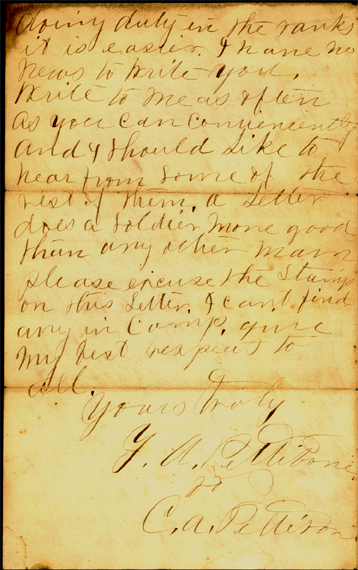 doing duty in the ranks
it is easier. I have no
news to write you.
Write to me as often
as you can conveniently
and I should like to
hear from some of the
rest of them. a letter
does a soldier more good
than any other man
please excuse the stamp
on this letter. I cant find
any in Camp. give
my best respects to
all.
Yours truly
A. Pettibone
to
C. A. Pettibone